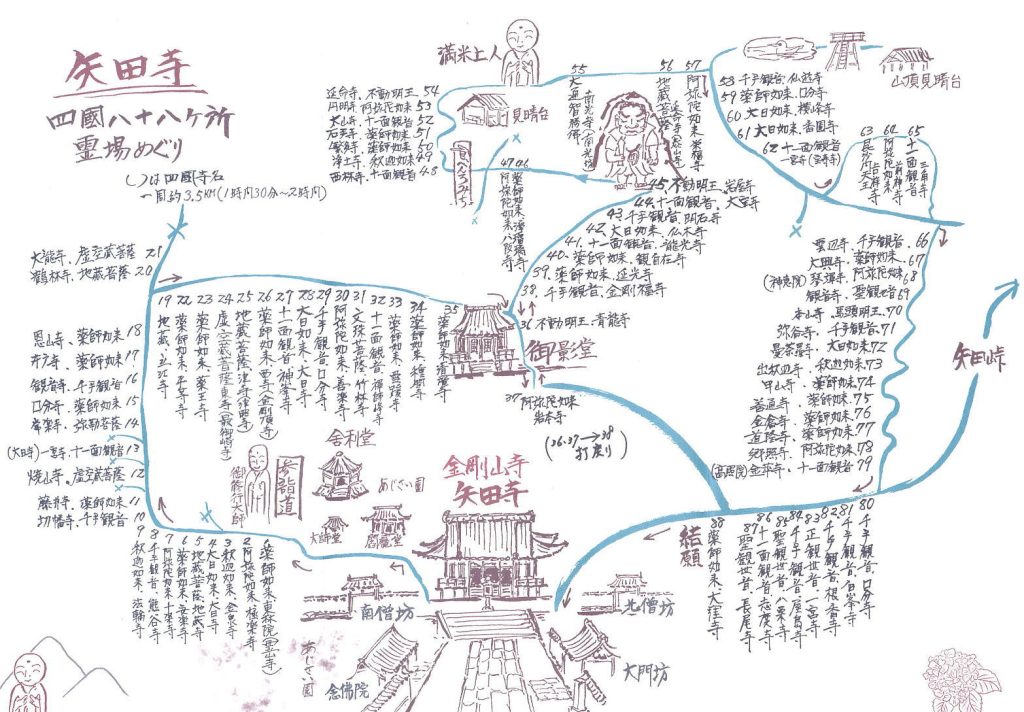 矢田寺
四國八十八ヶ所
霊場めぐり
( )は四國寺名
一周約3.5KM(1時間30分〜2時間)
満米上人
見晴台
山頂見晴台
延命寺、不動明王、54
円明寺、阿弥陀如来、53
太山寺、十一面観音、52
石手寺、薬師如来、51
繁多寺、薬師如来、50
浄土寺、釈迦如来、49
西林寺、十一面観音、48
55 大通智勝佛 南光坊
56 地蔵菩薩
57 阿弥陀如来、栄福寺
58 千手観音、仙遊寺
59 薬師如来、国分寺
60 大日如来、横峰寺
61 大日如来、香園寺
62 十一面観音
63 毘沙門天王 吉祥寺
64 阿弥陀如来 前神寺
65 十一面観音 三角寺
47 阿弥陀如来、八坂寺
46 薬師如来、浄瑠璃寺
45、不動明王、岩屋寺
44、十一面観音、大宝寺
43、千手観音、明石寺
42、大日如来、仏木寺
41、十一面観音、龍光寺
40、薬師如来、観自在寺
39、薬師如来、延光寺
38、千手観音、金剛福寺
36 不動明王、青龍寺
御影堂
37 阿弥陀如来
岩本寺
(36.37→38
打戻り)
太龍寺、虚空蔵菩薩 21
鶴林寺、地蔵菩薩 20
恩山寺、薬師如来 18
井戸寺、薬師如来 17
観音寺、千手観音 16
国分寺、薬師如来 15
常楽寺、弥勒菩薩 14
(大日寺)一宮寺、十一面観音 13
焼山寺、虚空蔵菩薩 12
藤井寺、薬師如来 11
切幡寺、千手観音 10
19 地蔵、立江寺
22 薬師如来、平等寺
23 薬師如来、薬王寺
24 虚空蔵菩薩、東寺(最御崎寺)
25 地蔵菩薩、津寺(津照寺)
26 薬師如来、西寺(金剛頂寺)
27 十一面観音、神峯寺
28 大日如来、大日寺
29 千手観音、国分寺
30 阿弥陀如来、善楽寺
31 文珠菩薩、竹林寺
32 十一面観音、禅師峰寺
33 薬師如来、雪蹊寺
34 薬師如来、種間寺
35 薬師如来、清瀧寺
雲辺寺、千手観音、66
大興寺、薬師如来、67
(神恵院)琴弾寺、阿弥陀如来、68
観音寺、聖観世音 69
本山寺、馬頭明王、70
弥谷寺、千手観音、71
曼荼羅寺、大日如来 72
出釈迦寺、釈迦如来、73
甲山寺、薬師如来、74
善通寺、薬師如来、75
金倉寺、薬師如来、76
道隆寺、薬師如来、77
郷照寺、阿弥陀如来、78
十一面観音、79
矢田峠
舎利堂
参詣道
御修行大師
あじさい園
大師堂
閻魔堂
金剛山寺
矢田寺
結願
9 釈迦如来、法輪寺
8 千手観音、熊谷寺
7 阿弥陀如来、十楽寺
6 薬師如来、安楽寺
5 地蔵菩薩、地蔵寺
4 大日如来、大日寺
3 釈迦如来、金泉寺
2 阿弥陀如来、極楽寺
1 薬師如来、東林院(霊山寺)
88 薬師如来、大窪寺
87 聖観世音、長尾寺
86 十一面観音、志度寺
85 聖観世音、八栗寺
84 千手観音、屋島寺
83 正観世音、一宮寺
82 千手観音、根香寺
81 千手観音、白峯寺
80 千手観音、国分寺
南僧坊
北僧坊
念佛院
大門坊
あじさい園